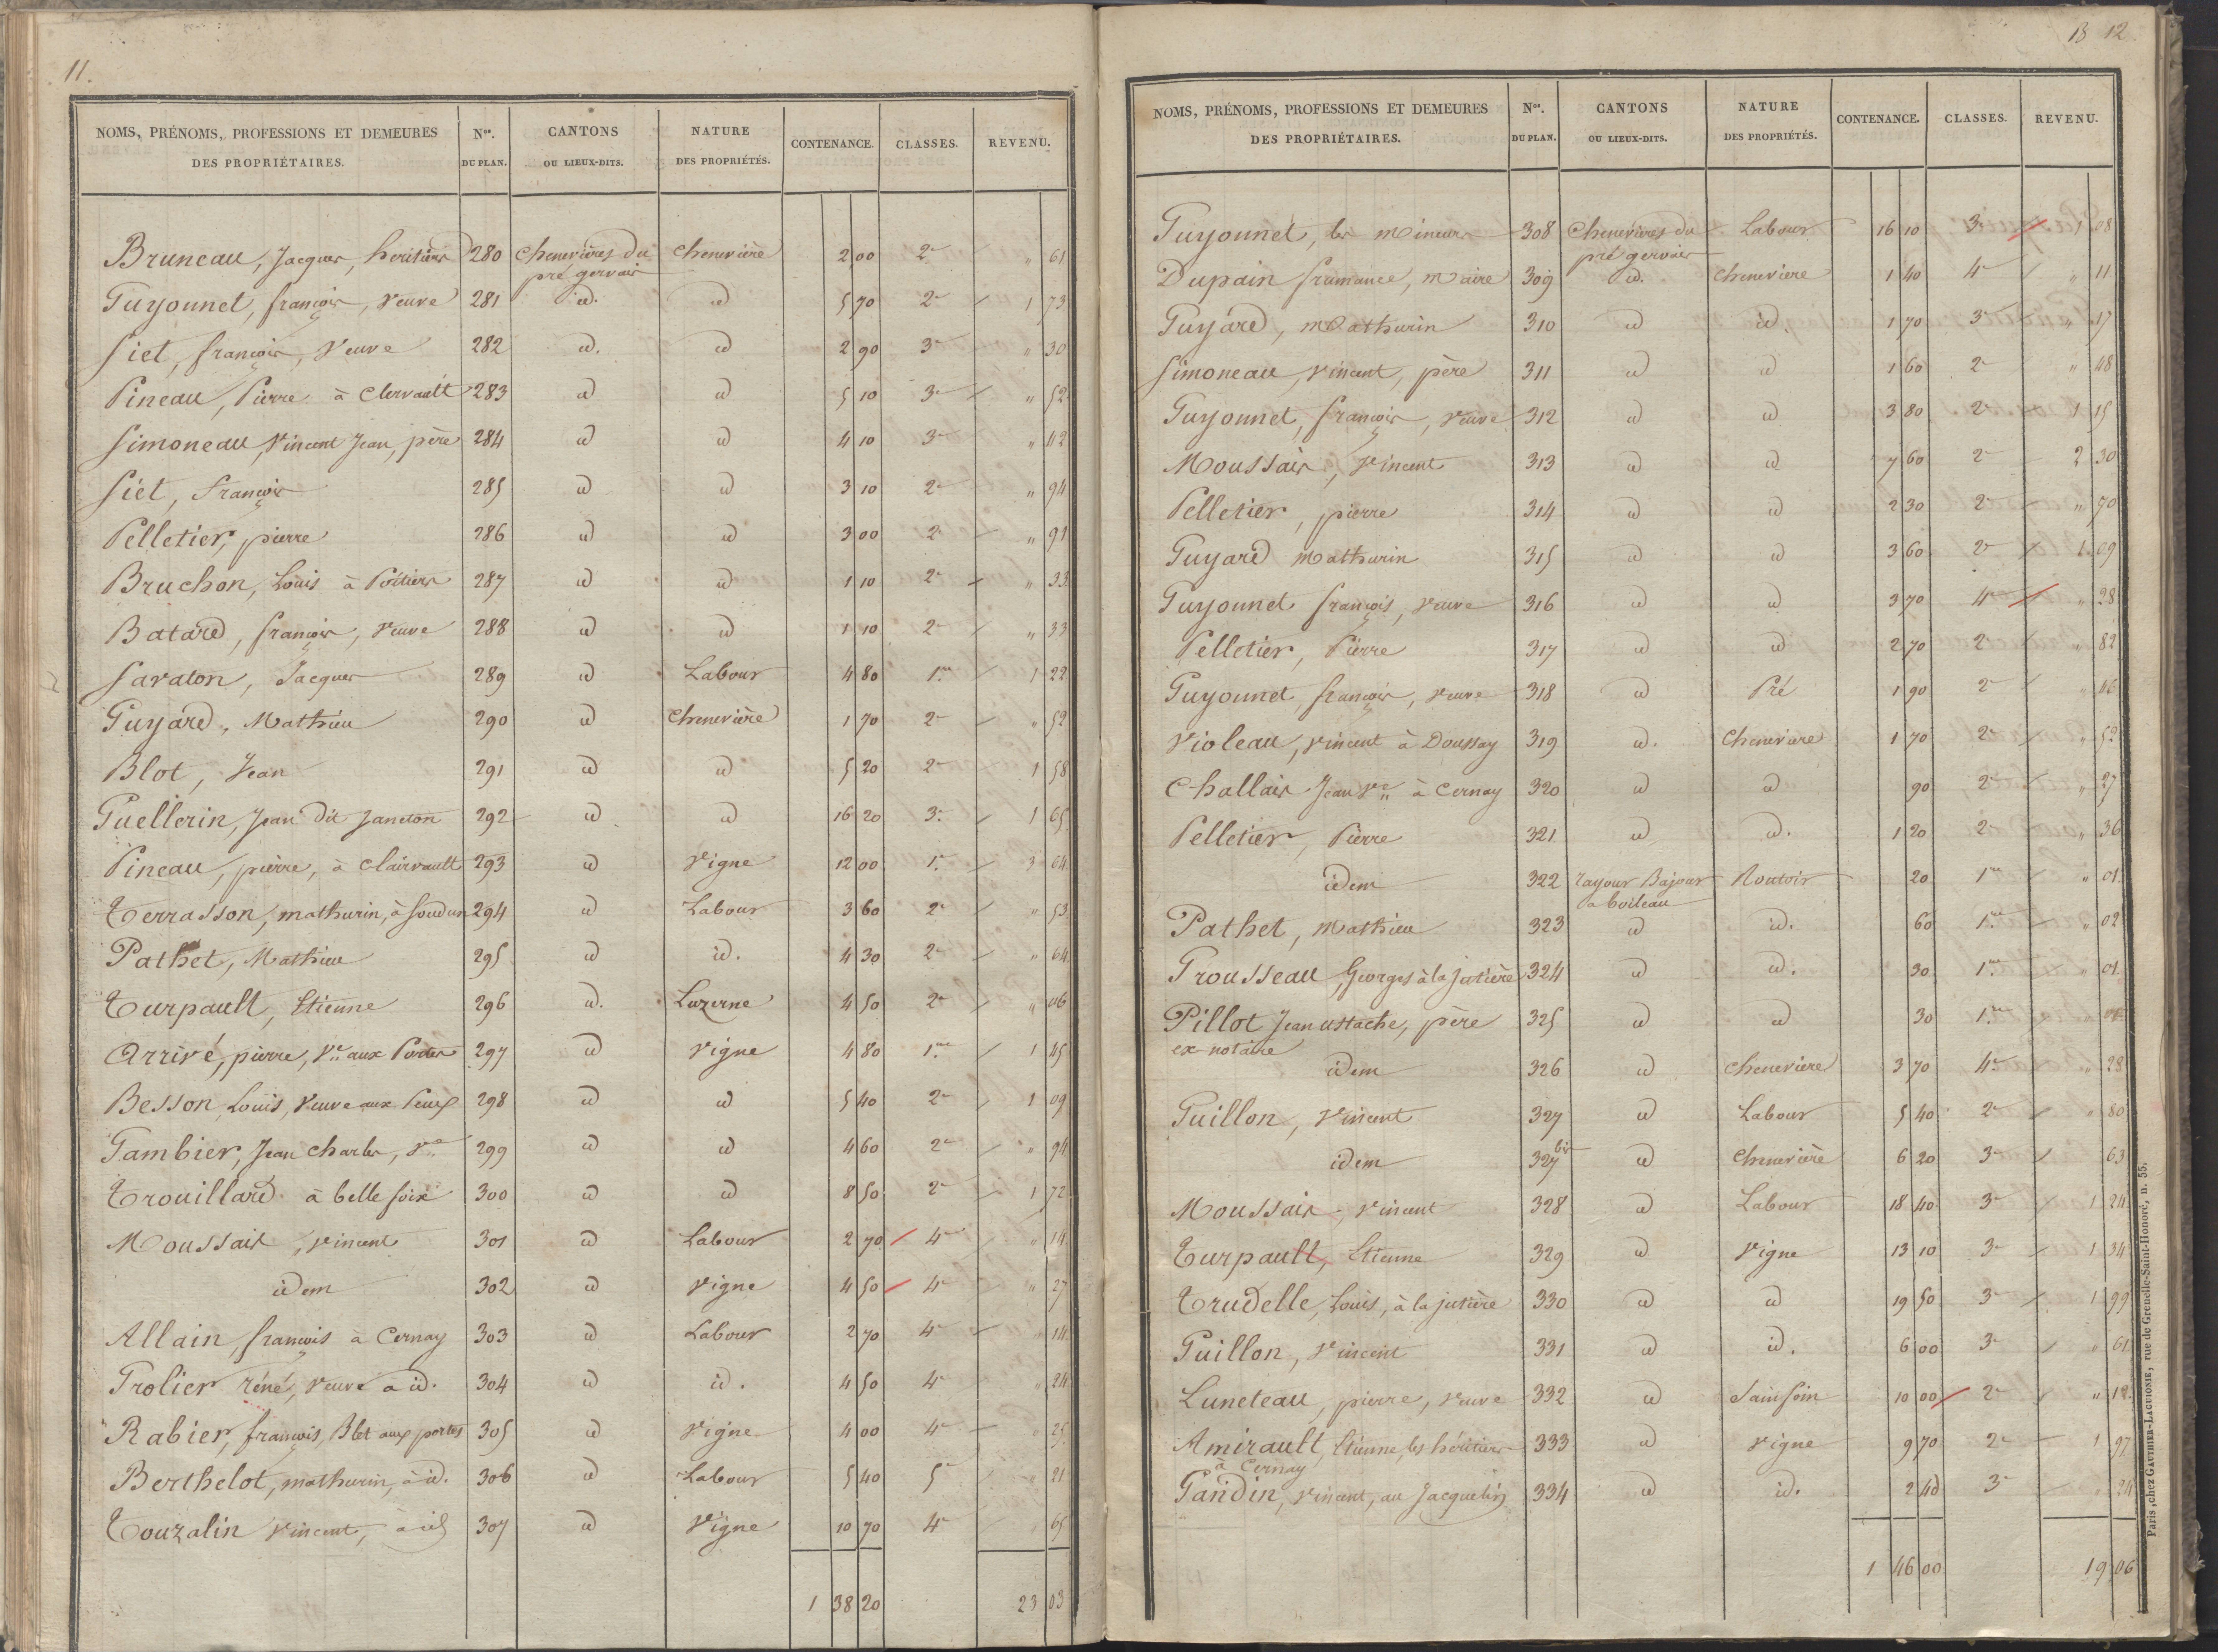 11.
NOMS, PRÉNOMS, PROFESSIONS ET DEMEURES DES PROPRIÉTAIRES. Nos. DU PLAN. CANTONS OU LIEUX-DITS. NATURE DES PROPRIÉTÉS. CONTENANCE. CLASSES. REVENU.
Bruneau, Jacques, heritiers 280 Chenevières du pré gervais Chenevière 2 00 2e " 61
Guyonnet, françois, Veuve 281 id. id 5 70 2e 1 73
Siet, françois, Veuve 282 id. id 2 90 3e " 30
Pineau, Pierre à Clervault 283 id id 5 10 3e " 52
Simoneau, Vincent Jean, père 284 id id 4 10 3e " 42
Siet, François 285 id id 3 10 2e " 94
Pelletier, pierre 286 id id 3 00 2e " 91
Bruchon, Louis à Poitiers 287 id id 1 10 2e " 33
Batard, françois, Veuve 288 id id 1 10 2e " 33
Savaton, Jacques 289 id Labour 4 80 1re 1 22
Guyard, Mathieu 290 id Chenevière 1 70 2e " 52
Blot, Jean 291 id id 5 20 2e 1 58
Guellerin, Jean dit Janeton 292 id id 16 20 3e 1 65
Pineau, pierre, à Clairvault 293 id Vigne 12 00 1re 3 64
Terrasson, mathurin, à Soudun 294 id Labour 3 60 2e " 53
Pathet, Mathieu 295 id id. 4 30 2e " 64
Turpault, Etienne 296 id. Luzerne 4 50 2e " 06
Arrivé, pierre, Ve aux Portes 297 id Vigne 4 80 1re 1 45
Besson, Louis, Veuve aux Peux 298 id id 5 40 2e 1 09
Gambier, Jean Charles, Ve 299 id id 4 60 2e " 94
Trouillard à belle foix 300 id id 8 50 2e 1 72
Moussait, Vincent 301 id Labour 2 70 4e " 14
idem 302 id Vigne 4 50 4e " 27
Allain, françois à Cernay 303 id Labour 2 70 4e " 14
Grolier réné, Veuve à id. 304 id id. 4 50 4e " 24
Rabier, françois, Blet aux portes 305 id Vigne 4 00 4e " 25
Berthelot, mathurin, à id. 306 id Labour 5 40 5e " 21
Touzalin Vincent, à id 307 id Vigne 10 70 4e 65
1 38 20 23 03
B 12
NOMS, PRÉNOMS, PROFESSIONS ET DEMEURES DES PROPRIÉTAIRES. Nos. DU PLAN. CANTONS OU LIEUX-DITS. NATURE DES PROPRIÉTÉS. CONTENANCE. CLASSES. REVENU.
Guyonnet, les mineurs 308 Chenevières du pré gervais Labour 16 10 3e 1 08
Dupainframance, Maire 309 id. Chenevière 1 40 4e " 11
Guyard, Mathurin 310 id id. 1 70 3e " 17
Simoneau, Vincent, père 311 id id 1 60 2e " 48
Guyonnet, françois, Veuve 312 id id 3 80 2e 1 15
Moussais, Vincent 313 id id 7 60 2e 2 30
Pelletier, pierre 314 id id 2 30 2e " 70
Guyard Mathurin 315 id id 3 60 2e 1 09
Guyonnet françois, Veuve 316 id id 3 70 4e " 28
Pelletier, Pierre 317 id id 2 70 2e " 82
Guyonnet, françois, Veuve 318 id Pré 1 90 2e " 46
Violeau, Vincent à Doussay 319 id. Chenevière 1 70 2e " 52
Challais Jean Ve à Cernay 320 id id 90 2e " 27
Pelletier, Pierre 321 id id. 1 20 2e " 36
idem 322 rayour Bajour a boileau Routoir 20 1re " 01
Pathet, Mathieu 323 id id. 60 1re " 02
Trousseau, Georges à la jutière 324 id id. 30 1re " 01
Pillot Jean ustache, père ex-notaire 325 id id 30 1re " 01
idem 326 id Chenevière 3 70 4e " 28
Guillon, Vincent 327 id Labour 5 40 2e " 80
idem 327 bis id Chenevière 6 20 3e 63
Moussais, Vincent 328 id Labour 18 40 3e 1 24
Turpault, Etienne 329 id Vigne 13 10 3e 1 34
Trudelle, Louis, à la jutière 330 id id 19 50 3e 1 99
Guillon, Vincent 331 id id. 6 00 3e " 61
Luneteau, pierre, Veuve 332 id Sainfoin 10 00 2e " 12
Amirault, Etienne, les héritiers à Cernay 333 id Vigne 9 70 2e 1 97
Gandin, Vincent, au Jacquelin 334 id id. 2 40 3e " 24
1 46 00 19 06
Paris, chez GAUTHIER-LAGUIONIE, rue de Grenelle-Saint-Honoré, n. 55.